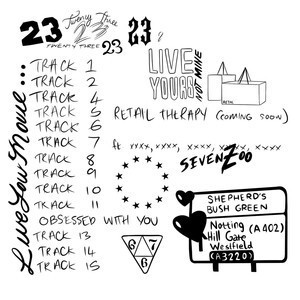 23 Twenty Three 23 23 23 ?
TWENTY THREE
LIVE
YOURS
NOT MINE
RETAIL
RETAIL THERAPY (COMING SOON)
Live Your Movie...
TRACK 1
TRACK 2
TRACK 4
TRACK 5
TRACK 6
TRACK 7
TRACK 8
TRACK 9
TRACK 10
TRACK 11
OBSESSED WITH YOU
TRACK 13
TRACK 14
TRACK 15
ft xxxx, xxxx, xxxx, xxxx, xx
SEVENZOO
7
6 7
6
SHEPHERD'S
BUSH GREEN
Notting (A402)
Hill Gate
Westfield
(A3220)